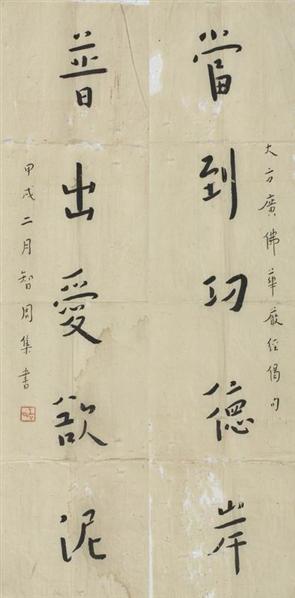 大方廣佛華嚴經偈句
當到功德岸
普出愛欲泥
甲戌二月智周集書